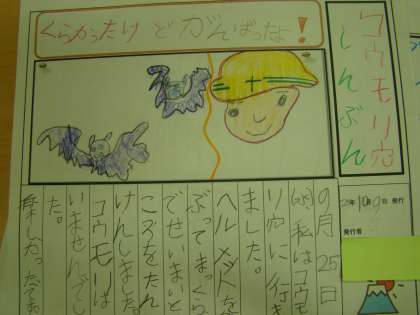 コウモリ穴
しんぶん
くらかったけどがんばったよ!
発行
発行者
9月25日
(水)私はコウモ
リ穴に行き
ました。
ヘルメットを
ぶってまっくら
でせいまいと
ころをたん
けんしました。
コウモリは
いませんでし
た。
楽しかったで